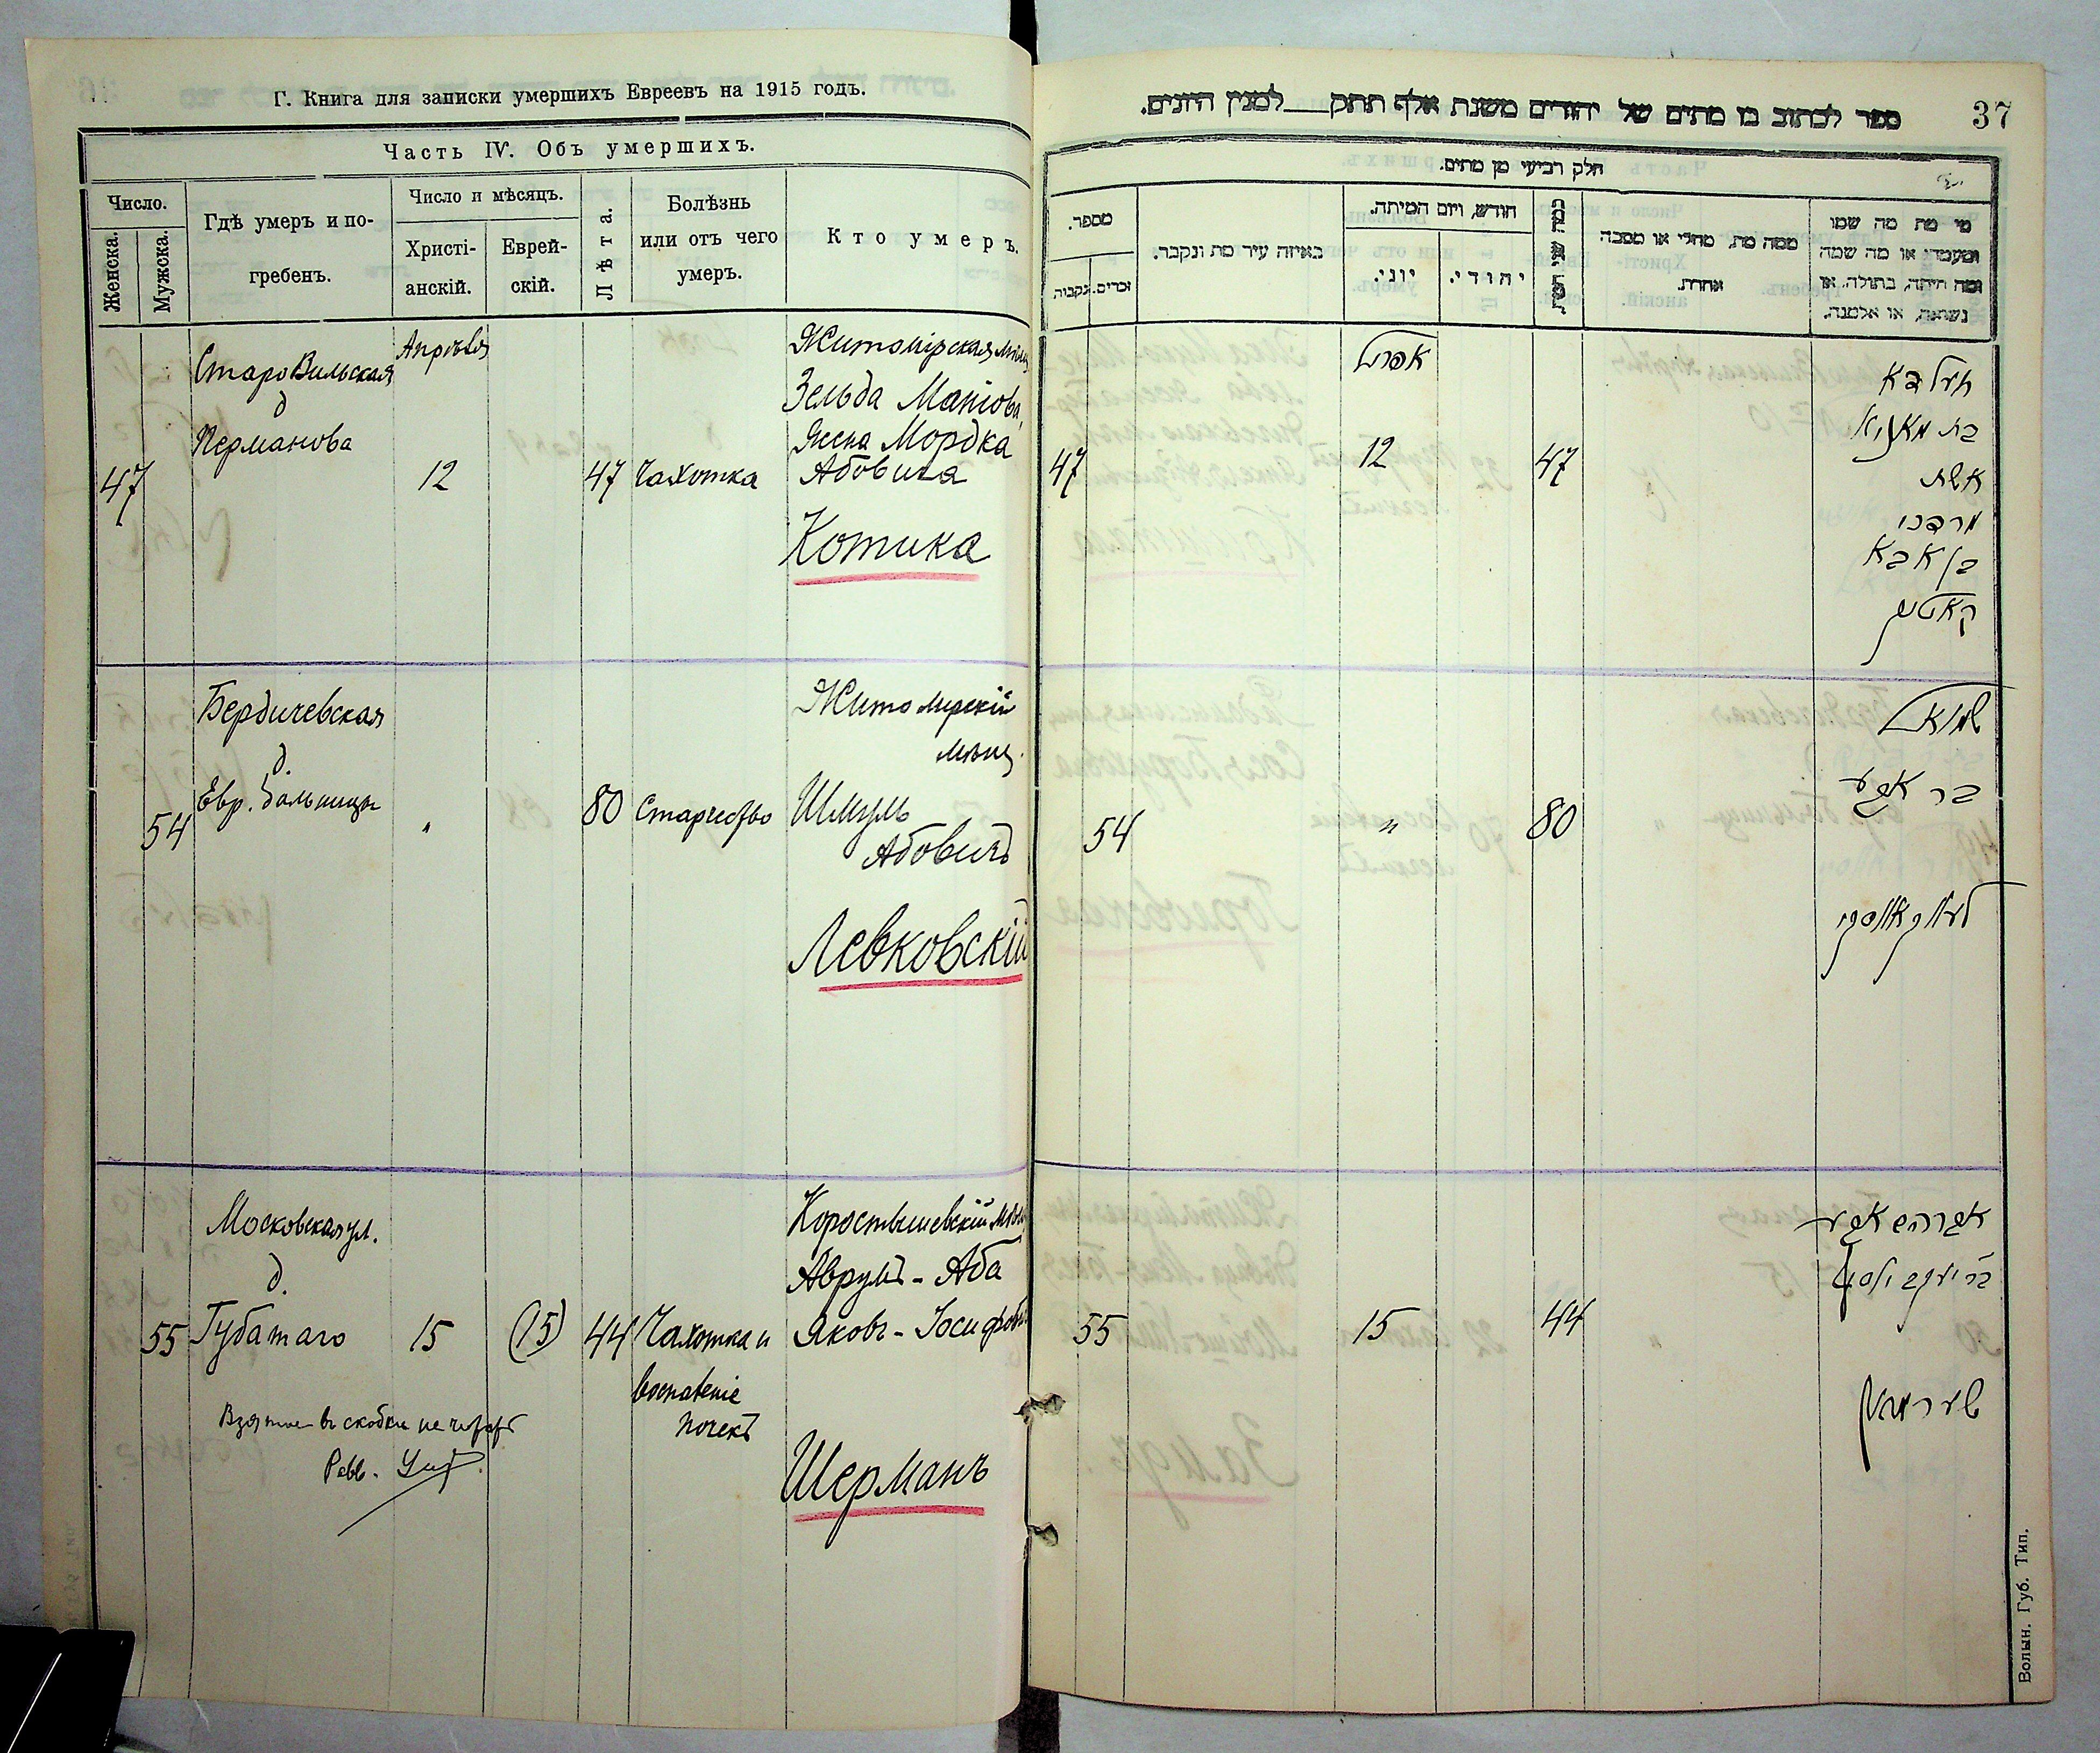 Г. Книга для записки умершихъ Евреевъ на 1915 годъ.
Часть IV. Объ умершихъ.
Число.
Женска.
Мужска.
Гдѣ умеръ и по-
гребенъ.
Число и мѣсяцъ.
Христі-
анскій.
Еврей-
скій.
Лѣта.
Болѣзнь
или отъ чего
умеръ.
Кто умеръ.
Апрѣля
СтароВильская
д
Перманова
47
12
47
Чахотка
Житомірская мѣщ
Зельда Маніова,
Жена Мордка
Абовича
Котика
Бердичевская
д.
Евр. больницы
54
"
80
Старчество
Житомірскій
мѣщ.
Шмуль
Абовичъ
Левковскій
Московская ул.
д.
55
Губатаго
15
(15)
44
Чахотка и
воспаленіе
почекъ
Коростышевскій мѣщ
Аврумъ - Аба
Яковъ - Іосифов
Шерманъ
Взятое въ скобки не читать
Равв.
37
ספר לכתוב בו מתים של יהודים משנת אלף תתק___למנין היונים.
חלק רביעי מן מתים.
מספר.
זכרים.
נקבות.
באיזה עיר מת ונקבר.
חודש, ויום המיתה.
יוני.
יהודי.
כמה שני המת
ממה מת, מחלי או מסבה
אחרת.
מי מת מה שמו
ומעמדו או מה שמה
ומה היתה, בתולה, או
נשואה, או אלמנה.
אפריל
47
12
47
זעלדא
בת מאניא
אשת
מרדכי
בן אבא
קאטיק
54
"
80
שמואל
בר אבא
לעווקאווסקי
55
15
44
אברהם אבא
בר יעקב יוסף
שערמאן
Волын. Губ. Тип.